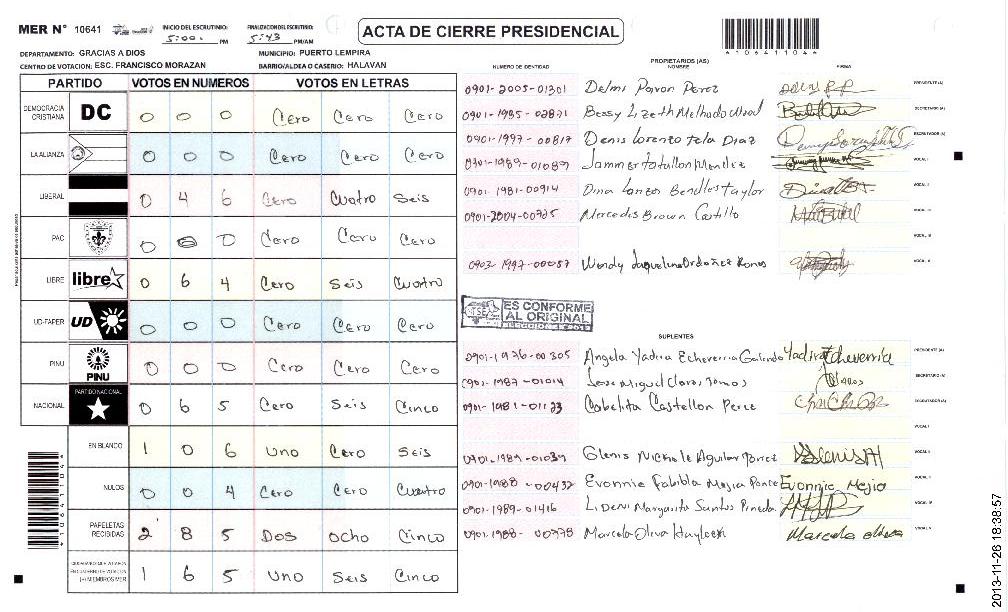 MER N° 10641
INICIO DEL ESCRUTINIO: 5:00. PM
FINALIZACION DEL ESCRUTINIO: 5:43 PM/AM
ACTA DE CIERRE PRESIDENCIAL
DEPARTAMENTO: GRACIAS A DIOS
MUNICIPIO: PUERTO LEMPIRA
CENTRO DE VOTACION: ESC. FRANCISCO MORAZAN
BARRIO/ALDEA O CASERIO: HALAVAN
PARTIDO VOTOS EN NUMEROS VOTOS EN LETRAS
DEMOCRACIA CRISTIANA DC 0 0 0 Cero Cero Cero
LA ALIANZA 0 0 0 Cero Cero Cero
LIBERAL 0 4 6 Cero Cuatro Seis
PAC 0 0 0 Cero Cero Cero
LIBRE libre 0 6 4 Cero Seis Cuatro
UD-FAPER UD 0 0 0 Cero Cero Cero
PINU PINU 0 0 0 Cero Cero Cero
NACIONAL PARTIDO NACIONAL 0 6 5 Cero Seis Cinco
EN BLANCO 1 0 6 Uno Cero Seis
NULOS 0 0 4 Cero Cero Cuatro
PAPELETAS RECIBIDAS 2 8 5 Dos Ocho Cinco
(+) MIEMBROS MER 1 6 5 Uno Seis Cinco
10641104
PROPIETARIOS (AS)
NUMERO DE IDENTIDAD NOMBRE FIRMA
0901-2005-01301 Delmi Pavon Perez PRESIDENTE (A)
0901-1985-02821 Bessy Lizeth Melhado SECRETARIO (A)
0901-1997-00817 Denis Lorenzo Tela Diaz ESCRUTADOR (A)
0901-1989-01089 VOCAL I
0901-1981-00914 Dina Taylor VOCAL II
0901-2004-00725 Mercedis Brown Castillo VOCAL III
0903-1997-00057 Wendy Jaquelina Ordoñez
ES CONFORME
AL ORIGINAL
SUPLENTES
0901-1976-00305 Angela Yadira Echeverria Galindo Yadira Echeverria PRESIDENTE (A)
0901-1987-01014 Jose Miguel SECRETARIO (A)
0901-1981-01123 Castellon Perez ESCRUTADOR (A)
VOCAL I
0901-1989-01039 Glenis Nichole Aguilar VOCAL II
0901-1988-00432 Evonnie Fabibla Mejia Ponce Evonnie Mejia
0901-1989-01416 Margarita Santos Pineda
0901-1988-00778 Marcela Oliva Marcela Oliva
2013-11-26 18:38:57